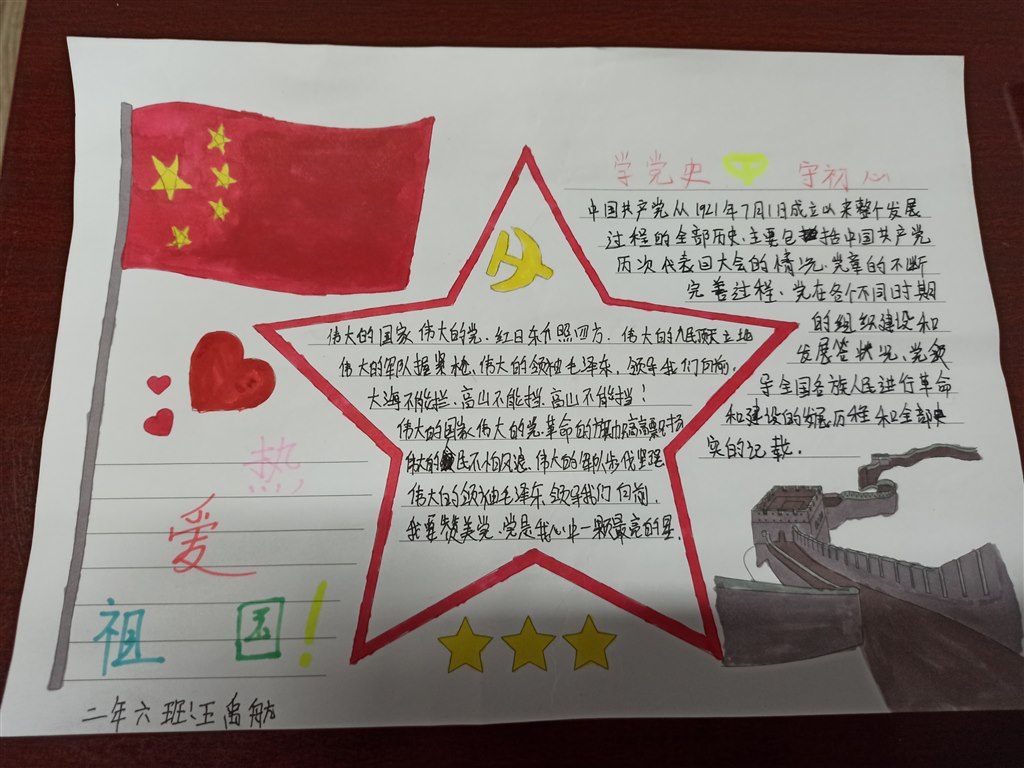 学党史 守初心
中国共产党从1921年7月1日成立以来整个发展
过程的全部历史.主要包括中国共产党
历次代表回大会的情况.党章的不断
完善过程、党在各个不同时期
的组织建设和
发展等状况、党领
导全国各族人民进行革命
和建设的发展历程和全部史
实的记载.
伟大的国家伟大的党.红日东升照四方.伟大的人民顶天立地
伟大的军队握紧枪.伟大的领袖毛泽东.领导我们向前.
大海不能拦.高山不能挡.高山不能挡!
伟大的国家伟大的党.革命的旗帜高高飘扬
伟大的人民不怕风浪.伟大的军队步伐坚强
伟大的领袖毛泽东.领导我们向前.
我要赞美党.党是我心中一颗最亮的星.
热
爱
祖国!
二年六班:王禹航